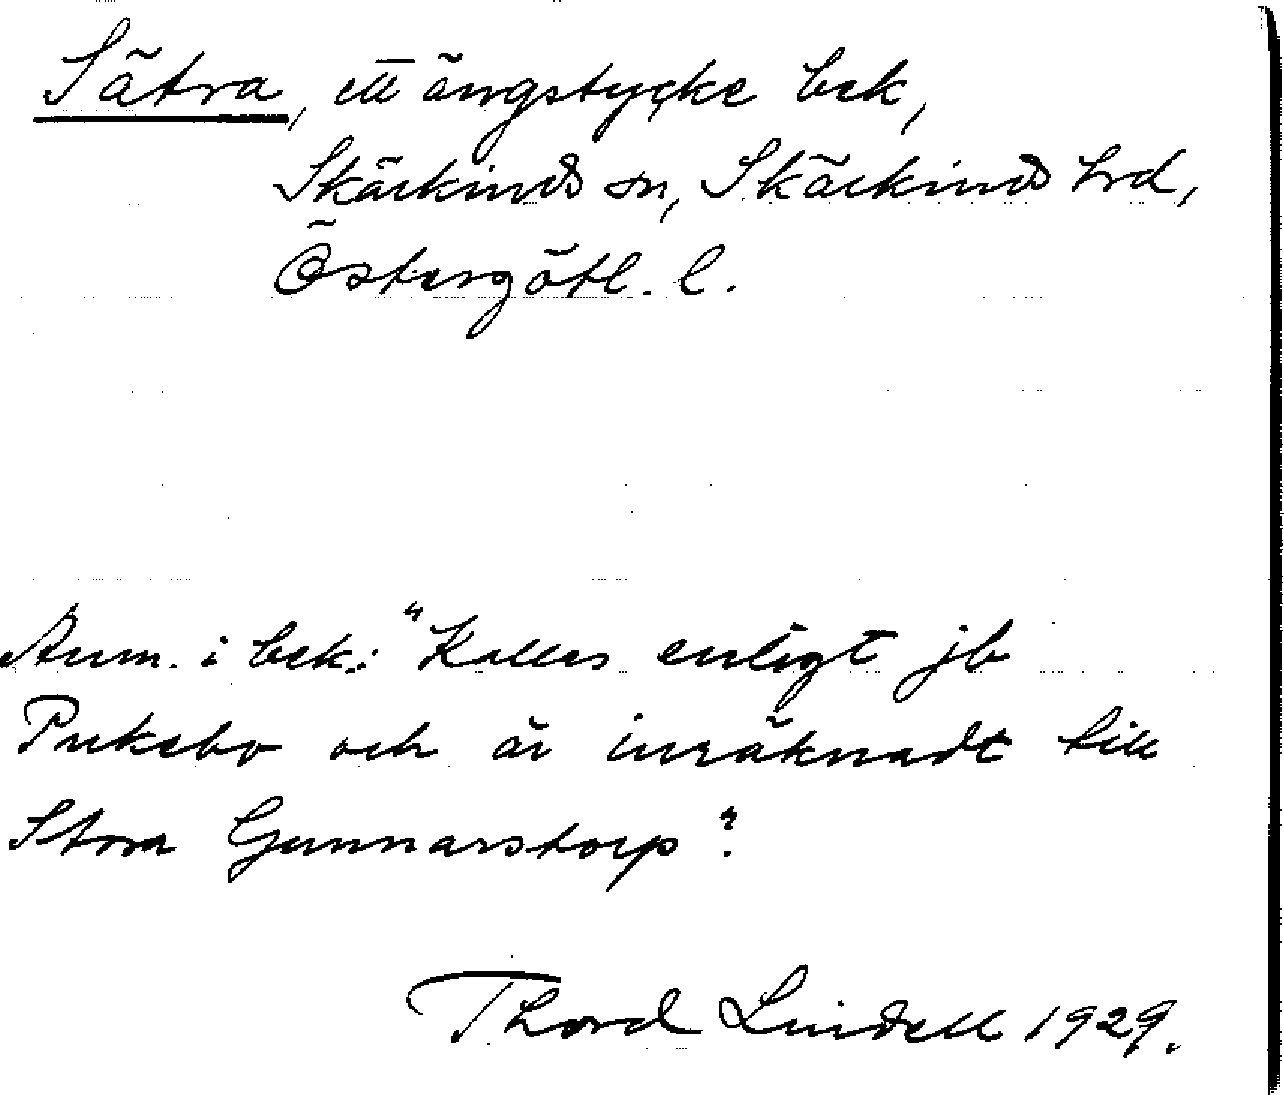 Sätra, ett ängstycke bek,
Skärkinds sn, Skärkinds hrd,
Östergötl. l.
Anm. i bek.: "Kallas enligt jb
Pukebo och är inräknadt till
Stora Gunnarstorp".
Thord Lindell 1929.